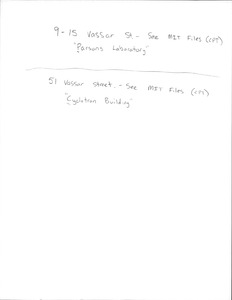 9-15 Vassar St - See MIT Files (CPT)
"Parsons Laboratory"
51 Vassar street. - See MIT Files (CPT)
"Cyclotron Building"